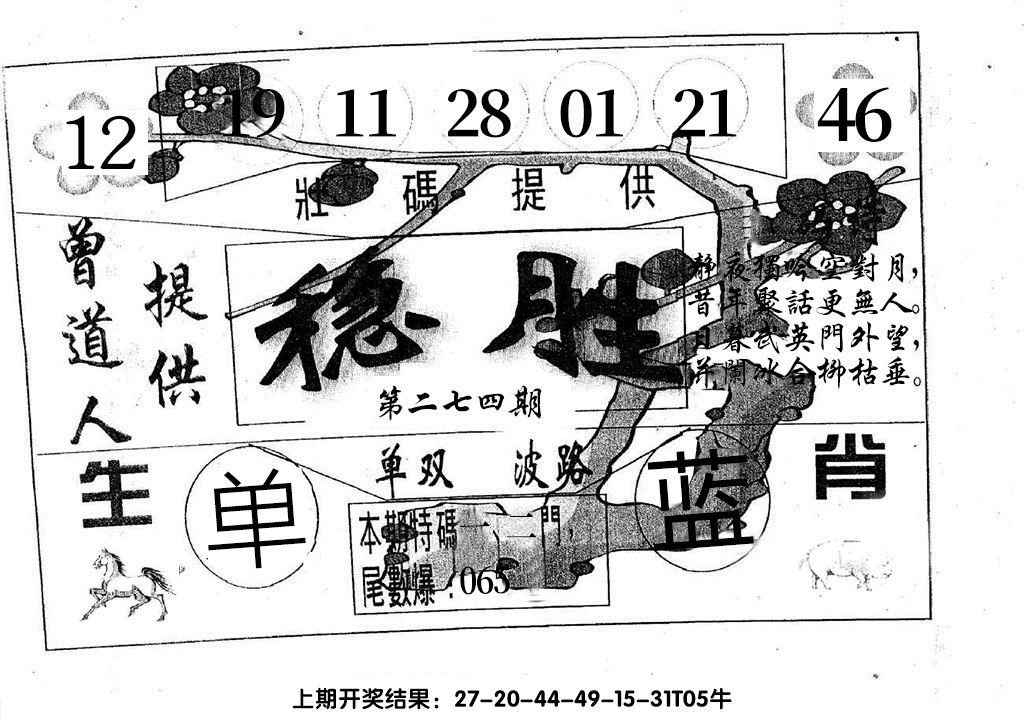 12 19 11 28 01 21 46
壯碼提供
曾道人
提供
特
穩胜
第二七四期
静夜獨吟空對月，
昔年聚話更無人。
日暮武英門外望，
闌冰合柳枯垂。
单双 波路
生肖
单
蓝
本期特碼一、二門，
尾數爆：065
上期开奖结果：27-20-44-49-15-31T05牛